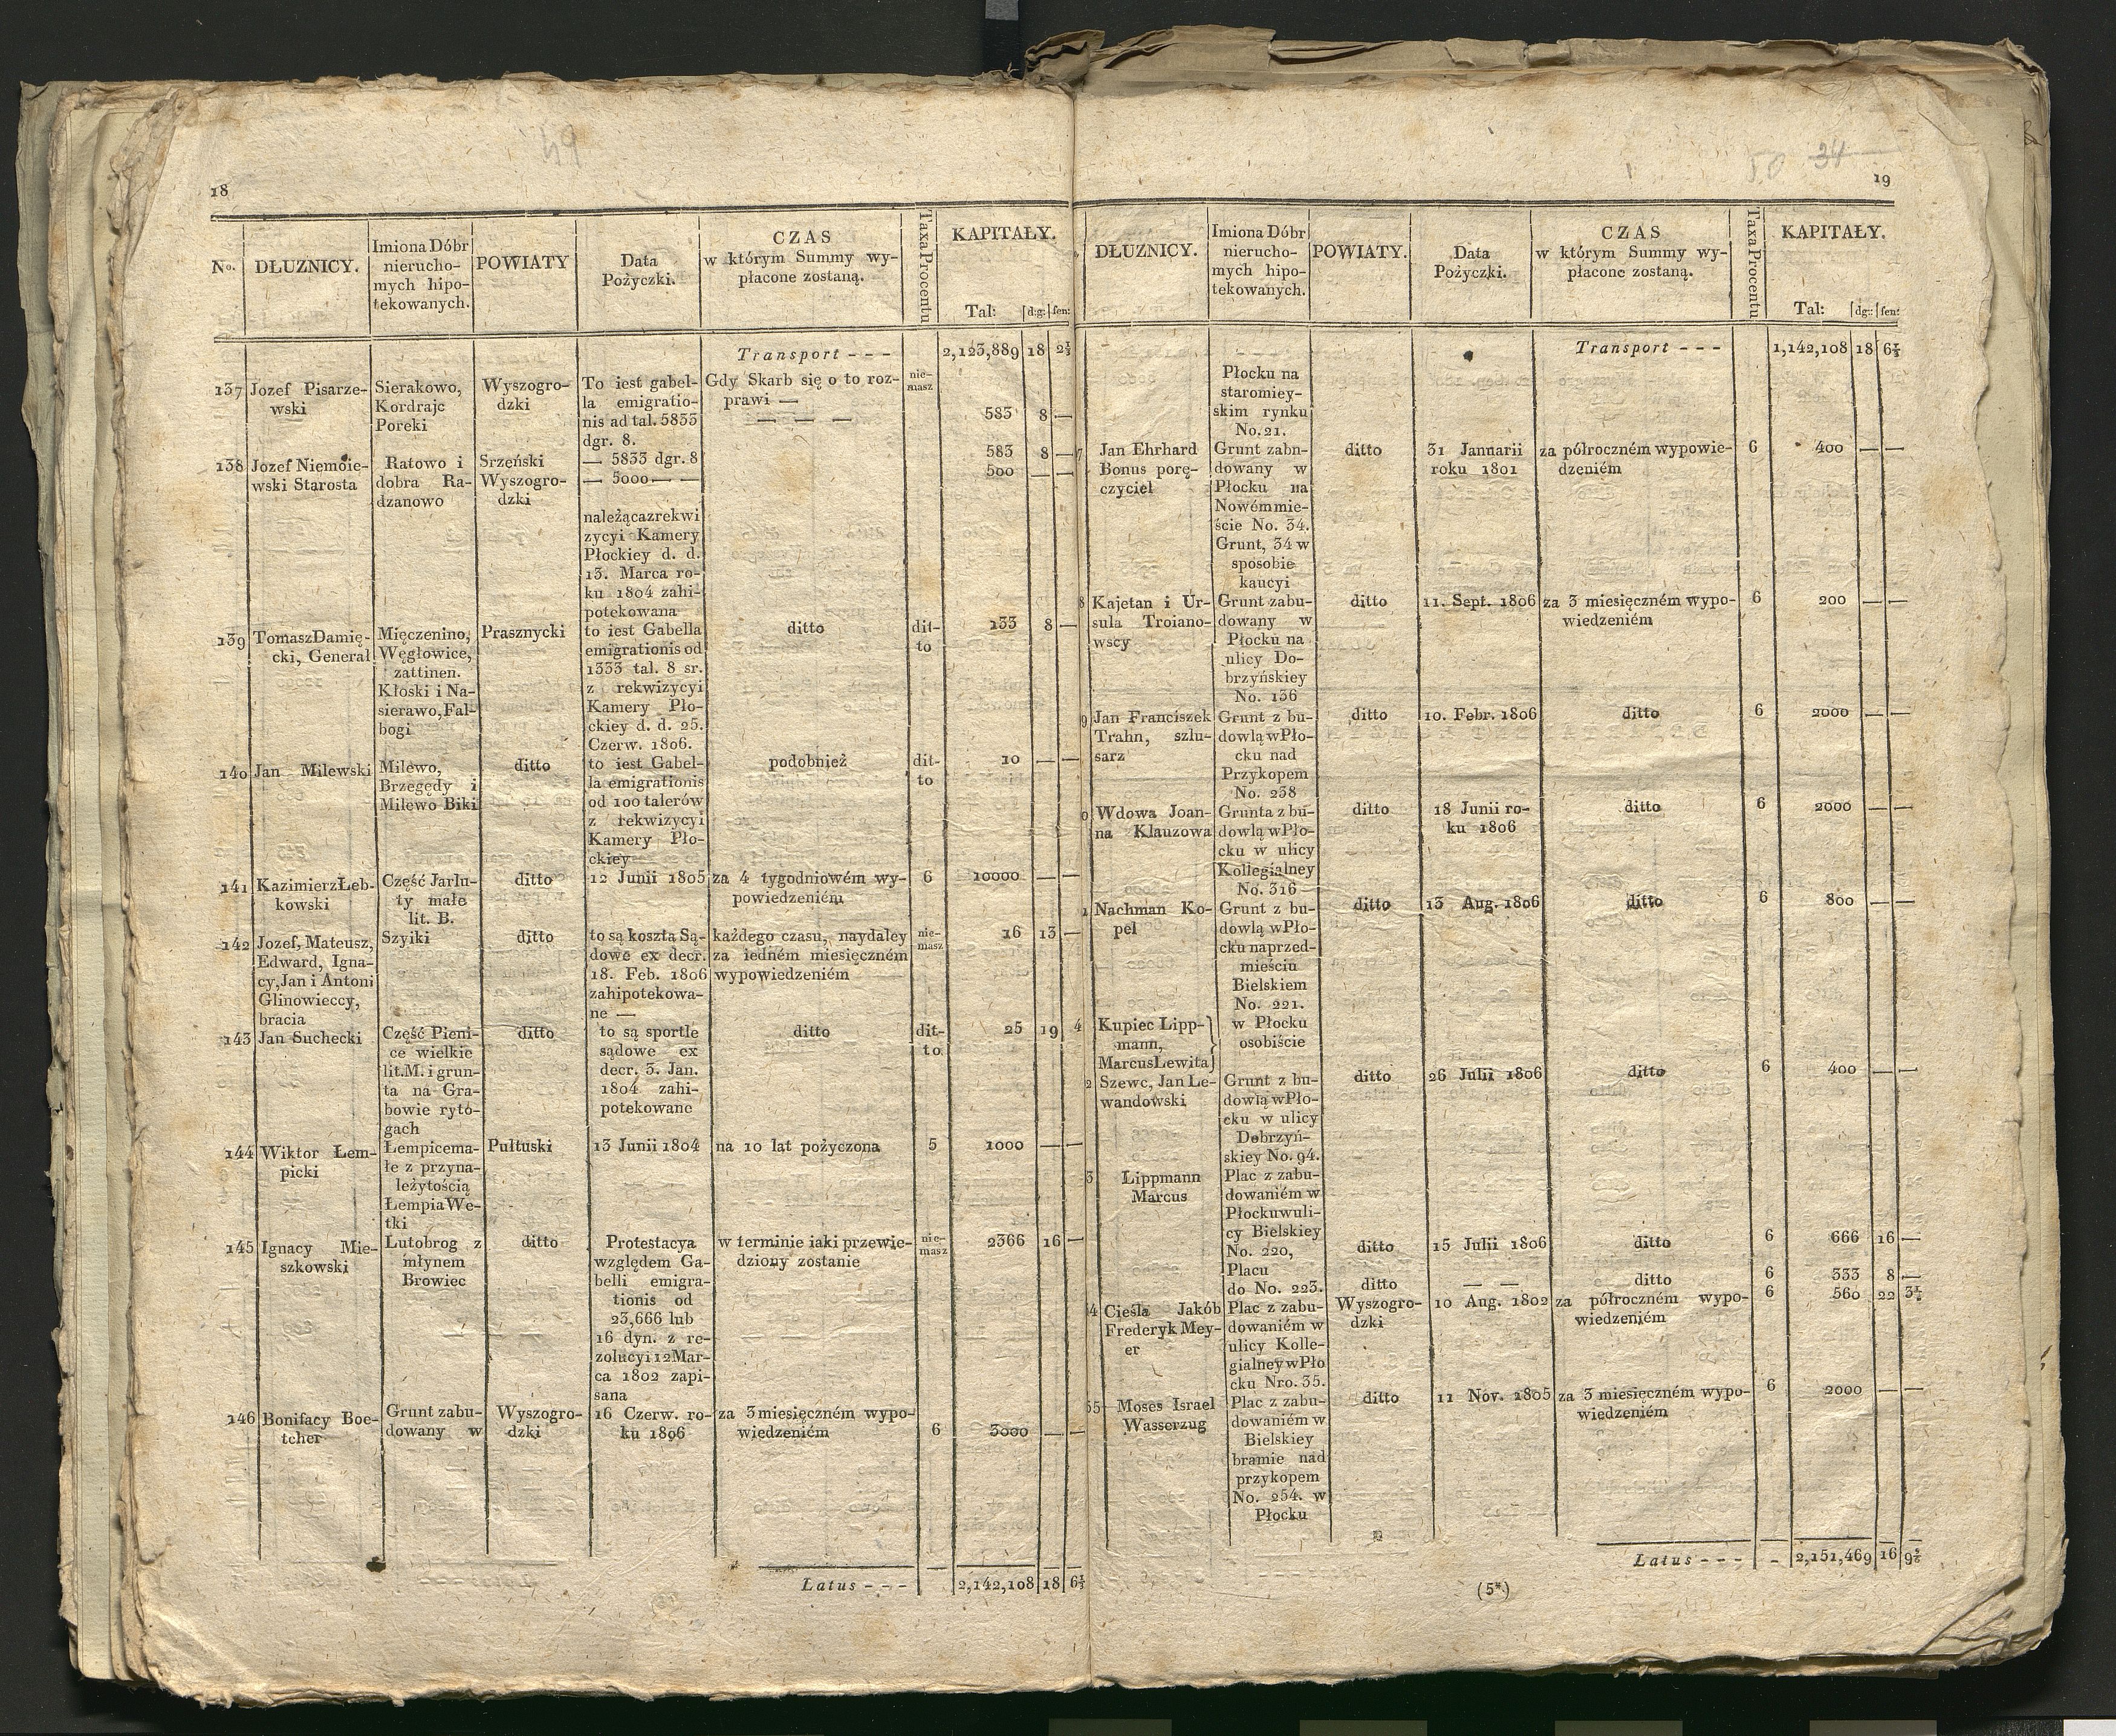 49
18
No.
DŁUZNICY.
Imiona Dóbr
nierucho-
mych hipo-
tekowanych.
POWIATY
Data
Pożyczki.
CZAS
w którym Summy wy-
płacone zostaną.
Taxa Procentu
KAPITAŁY.
Tal: d:g: fen:
Transport - - - 2,123,889 18 2⅓
137
Jozef Pisarze-
wski
Sierakowo,
Kordrajc
Poreki
Wyszogro-
dzki
To iest gabel-
la emigratio-
nis ad tal. 5833
dgr. 8.
Gdy Skarb się o to roz-
prawi —
— — —
nie-
masz
583 8 —
138
Jozef Niemoie-
wski Starosta
Ratowo i
dobra Ra-
dzanowo
Srzeński
Wyszogro-
dzki
— 5833 dgr. 8
— 5000 — —
należącazrekwi
zycyi Kamery
Płockiey d. d.
13. Marca ro-
ku 1804 zahi-
potekowana
583 8 —
500 — —
139
TomaszDamię-
cki, Generał
Mięczenino,
Węgłowice,
zattinen.
Kłoski i Na-
sierawo, Fal-
bogi
Prasznycki
to iest Gabella
emigrationis od
1333 tal. 8 sr.
z rekwizycyi
Kamery Pło-
ckiey d. d. 25.
Czerw. 1806.
ditto
dit-
to
133 8 —
140
Jan Milewski
Milewo,
Brzegędy i
Milewo Biki
ditto
to iest Gabel-
la emigrationis
od 100 talerów
z rekwizycyi
Kamery Pło-
ckiey
podobnież
dit-
to
10 — —
141
KazimierzŁeb-
kowski
Część Jarlu-
ty małe
lit. B.
ditto
12 Junii 1805
za 4 tygodniowém wy-
powiedzeniém
6
10000 — —
142
Jozef, Mateusz,
Edward, Igna-
cy, Jan i Antoni
Glinowieccy,
bracia
Szyiki
ditto
to są koszta Są-
dowe ex decr.
18. Feb. 1806
zahipotekowa-
ne —
każdego czasu, naydaley
za iedném miesięczném
wypowiedzeniém
nie-
masz
16 13 —
143
Jan Suchecki
Część Pieni-
ce wielkie
lit. M. i grun-
ta na Gra-
bowie rytó-
gach
ditto
to są sportle
sądowe ex
decr. 3. Jan.
1804 zahi-
potekowane
ditto
dit-
to
25 19 4
144
Wiktor Łem-
picki
Łempicema-
łe z przyna-
leżytością
ŁempiaWe-
tki
Pułtuski
13 Junii 1804
na 10 lat pożyczona
5
1000 — —
145
Ignacy Mie-
szkowski
Lutobrog z
młynem
Browiec
ditto
Protestacya
względem Ga-
belli emigra-
tionis od
23,666 lub
16 dyn. z re-
zolucyi 12 Mar-
ca 1802 zapi-
sana
w terminie iaki przewie-
dziony zostanie
nie-
masz
2366 16 —
146
Bonifacy Boe-
tcher
Grunt zabu-
dowany w
Wyszogro-
dzki
16 Czerw. ro-
ku 1806
za 3 miesięczném wypo-
wiedzeniém
6
3000 — —
Latus - - - 2,142,108 18 6⅓
50 34
19
DŁUZNICY.
Imiona Dóbr
nierucho-
mych hipo-
tekowanych.
POWIATY.
Data
Pożyczki.
CZAS
w którym Summy wy-
płacone zostaną.
Taxa Procentu
KAPITAŁY.
Tal: dg: fen:
Transport - - - 1,142,108 18 6⅓
Płocku na
staromiey-
skim rynku
No. 21.
7
Jan Ehrhard
Bonus porę-
czyciel
Grunt zabn-
dowany w
Płocku na
Nowémmie-
ście No. 34.
Grunt, 34 w
sposobie
kaucyi
ditto
31 Jannarii
roku 1801
za półroczném wypowie-
dzeniém
6
400 — —
8
Kajetan i Ur-
sula Troiano-
wscy
Grunt zabu-
dowany w
Płocku na
ulicy Do-
brzyńskiey
No. 136
ditto
11. Sept. 1806
za 3 miesięczném wypo-
wiedzeniém
6
200 — —
9
Jan Franciszek
Trahn, szlu-
sarz
Grunt z bu-
dowląwPło-
cku nad
Przykopem
No. 238
ditto
10. Febr. 1806
ditto
6
2000 — —
0
Wdowa Joan-
na Klauzowa
Grunta z bu-
dowlą wPło-
cku w ulicy
Kollegialney
No. 316 —
ditto
18 Junii ro-
ku 1806
ditto
6
2000 — —
1
Nachman Ko-
pel
Grunt z bu-
dowlą wPło-
cku naprzed-
mieściu
Bielskiem
No. 221.
ditto
13 Aug. 1806
ditto
6
800 — —
Kupiec Lipp-
mann,
MarcusLewita
w Płocku
osobiście
2
Szewc, Jan Le-
wandowski
Grunt z bu-
dowląwPło-
cku w ulicy
Dobrzyń-
skiey No. 94.
ditto
26 Julii 1806
ditto
6
400 — —
3
Lippmann
Marcus
Plac z zabu-
dowaniém w
Płockuwuli-
cy Bielskiey
No. 220,
Placu
do No. 223.
ditto
15 Julii 1806
ditto
6
666 16 —
ditto
— —
ditto
6
333 8 —
54
Cieśla Jakób
Frederyk Mey-
er
Plac z zabu-
dowaniém w
ulicy Kolle-
gialneywPło
cku Nro. 35.
Wyszogro-
dzki
10 Aug. 1802
za półroczném wypo-
wiedzeniém
6
560 22
55
Moses Israel
Wasserzug
Plac z zabu-
dowaniém w
Bielskiey
bramie nad
przykopem
No. 254. w
Płocku
ditto
11 Nov. 1805
za 3 miesięczném wypo-
wiedzeniém
6
2000 — —
Latus - - - - 2,151,469 16
(5*)